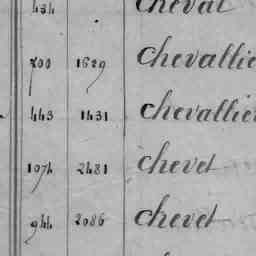 434 Cheval
700 1629 Chevallie
443 1431 Chevallier
1074 2481 Chevet
944 2086 Chevet